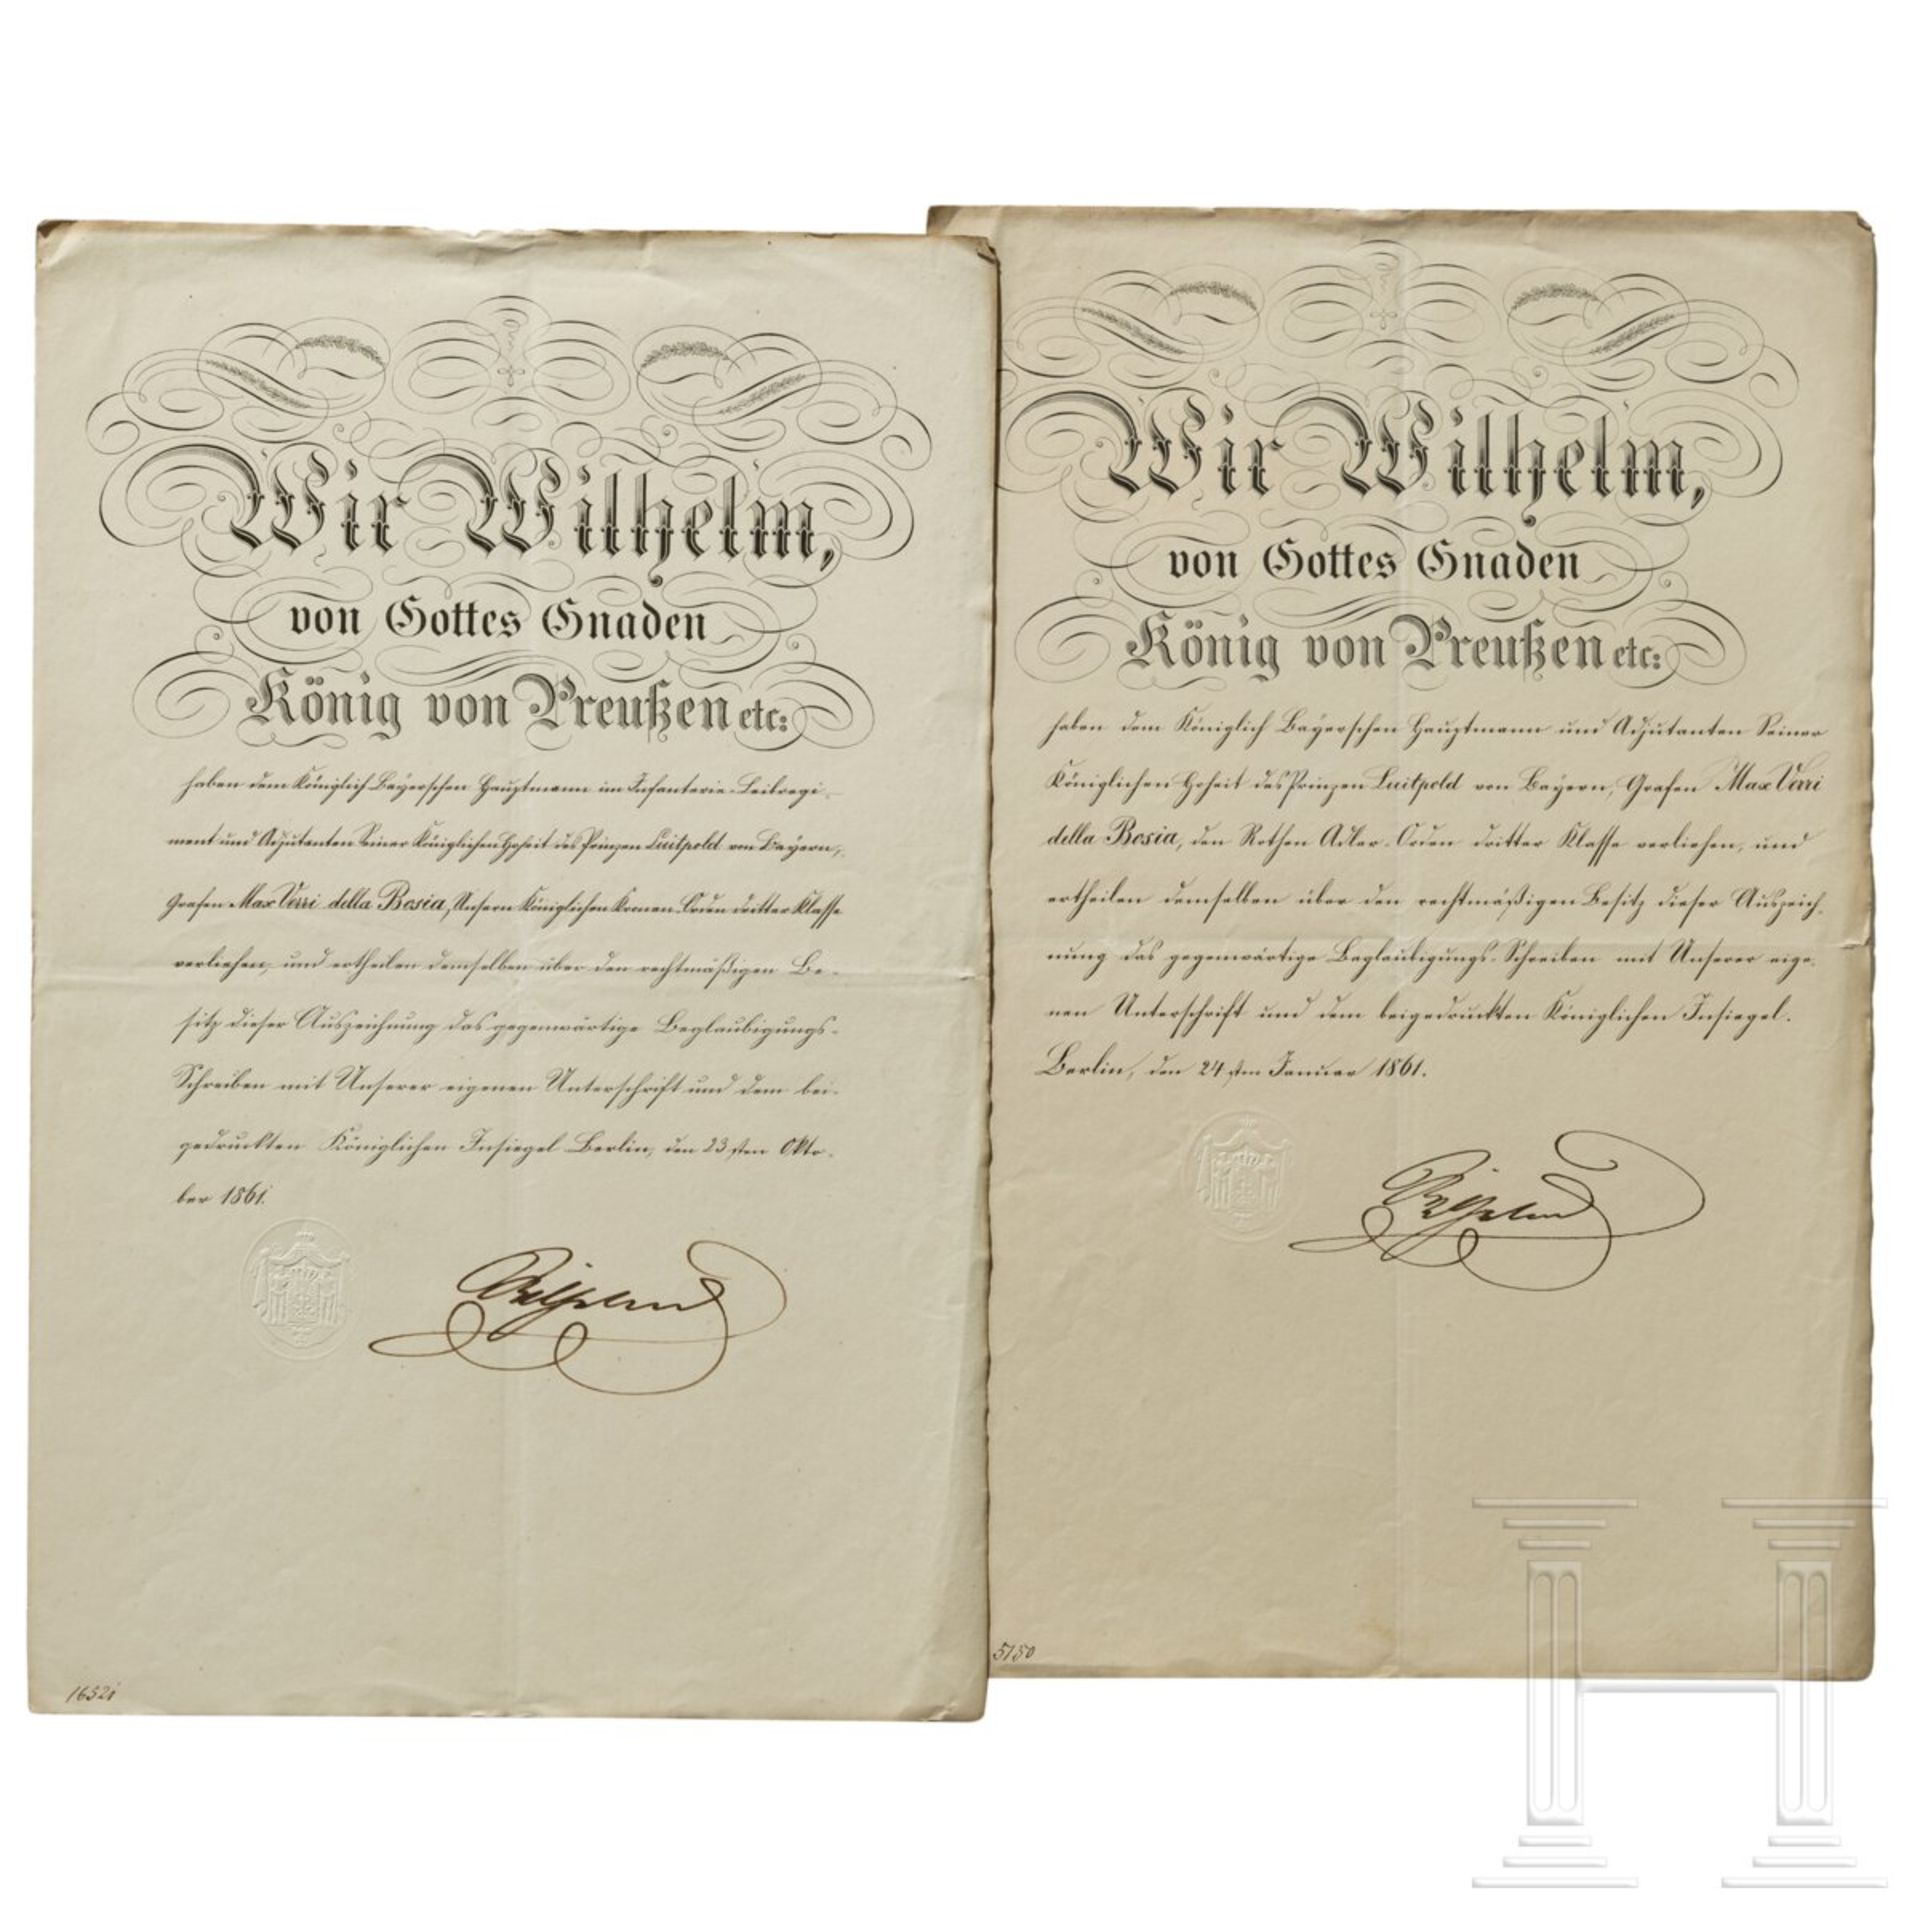 Wir Wilhelm,
von Gottes Gnaden
König von Preußen etc:
haben dem Königlich Bayerschen Hauptmann im Infanterie-Leibregi-
ment und Adjutanten Seiner Königlichen Hoheit des Prinzen Luitpold von Bayern,
Grafen Max Verri della Bosia, Unsern Königlichen Kronen-Orden dritter Klasse
verliehen, und ertheilen demselben über den rechtmäßigen Be-
sitz dieser Auszeichnung das gegenwärtige Beglaubigungs-
Schreiben mit Unserer eigenen Unterschrift und dem bei-
gedruckten Königlichen Insiegel. Berlin, den 23sten Okto-
ber 1861.
Wilhelm
16521
Wir Wilhelm,
von Gottes Gnaden
König von Preußen etc:
haben dem Königlich Bayerschen Hauptmann und Adjutanten Seiner
Königlichen Hoheit des Prinzen Luitpold von Bayern, Grafen Max Verri
della Bosia, den Rothen Adler-Orden dritter Klasse verliehen, und
ertheilen demselben über den rechtmäßigen Besitz dieser Auszeich-
nung das gegenwärtige Beglaubigungs-Schreiben mit Unserer eige-
nen Unterschrift und dem beigedruckten Königlichen Insiegel.
Berlin, den 24sten Januar 1861.
Wilhelm
5150